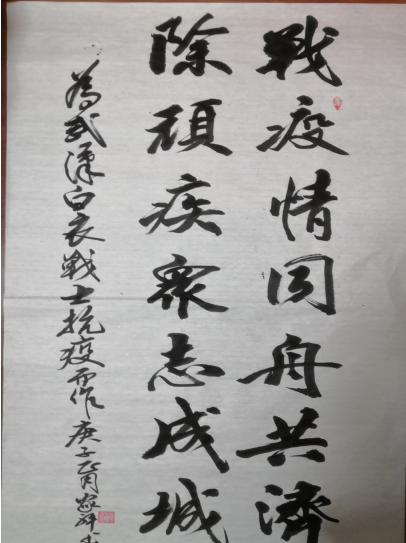 戰疫情同舟共濟
除頑疾衆志成城
為武漢白衣戰士抗疫而作庚子正月